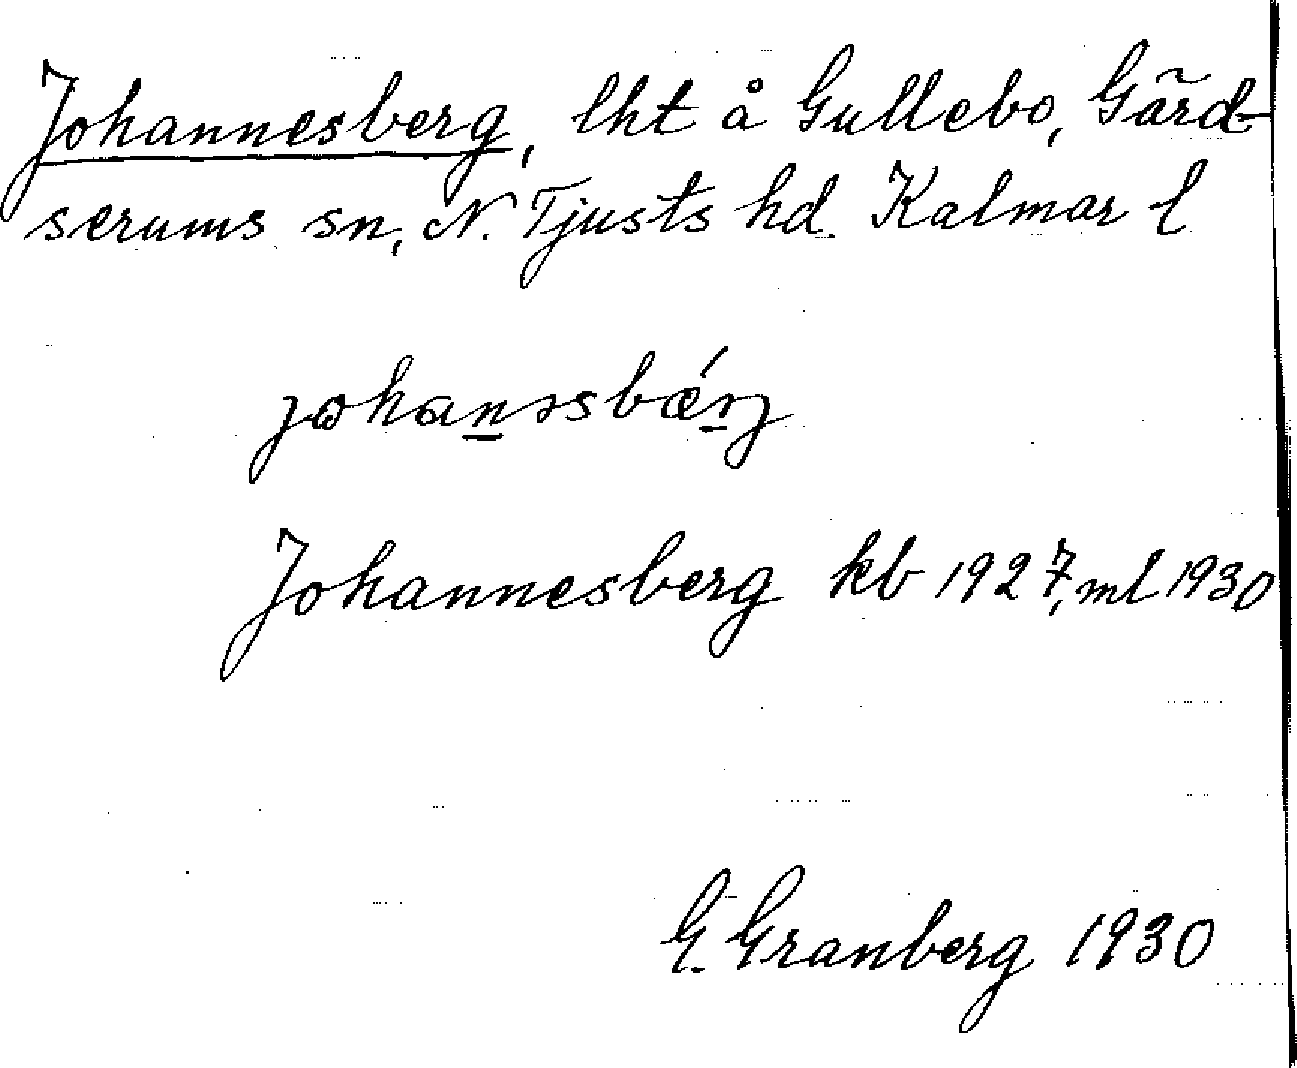 Johannesberg, lht å Gullebo, Gärd-
serums sn, N. Tjusts hd. Kalmar l
Johannesberg kb 1927, ml 1930
G. Granberg 1930